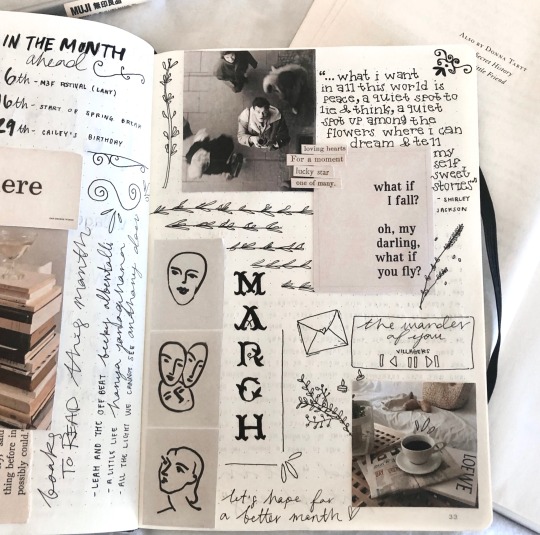 MUJI 無印良品
ALSO BY DONNA TARTT
Secret History
Little Friend
IN THE MONTH
ahead
6th - M3F FESTIVAL (LANY)
16th - START OF SPRING BREAK
29th - CAILEY'S BIRTHDAY
ere
books TO READ this month
- LEAH AND THE OFF BEAT becky albertalli
- A LITTLE LIFE hanya yanagihara
- ALL THE LIGHT WE CANNOT SEE anthony doerr
thing before in
possibly could
"... what i want
in all this world is
peace, a quiet spot to
lie & think, a quiet
spot up among the
flowers where i can
dream & tell
my
self
sweet
stories"
- SHIRLEY
JACKSON
loving hearts
For a moment
lucky star
one of many.
what if
I fall?
oh, my
darling,
what if
you fly?
MARCH
the wonder
of you
VILLAGERS
LOEWE
let's hope for
a better month
33